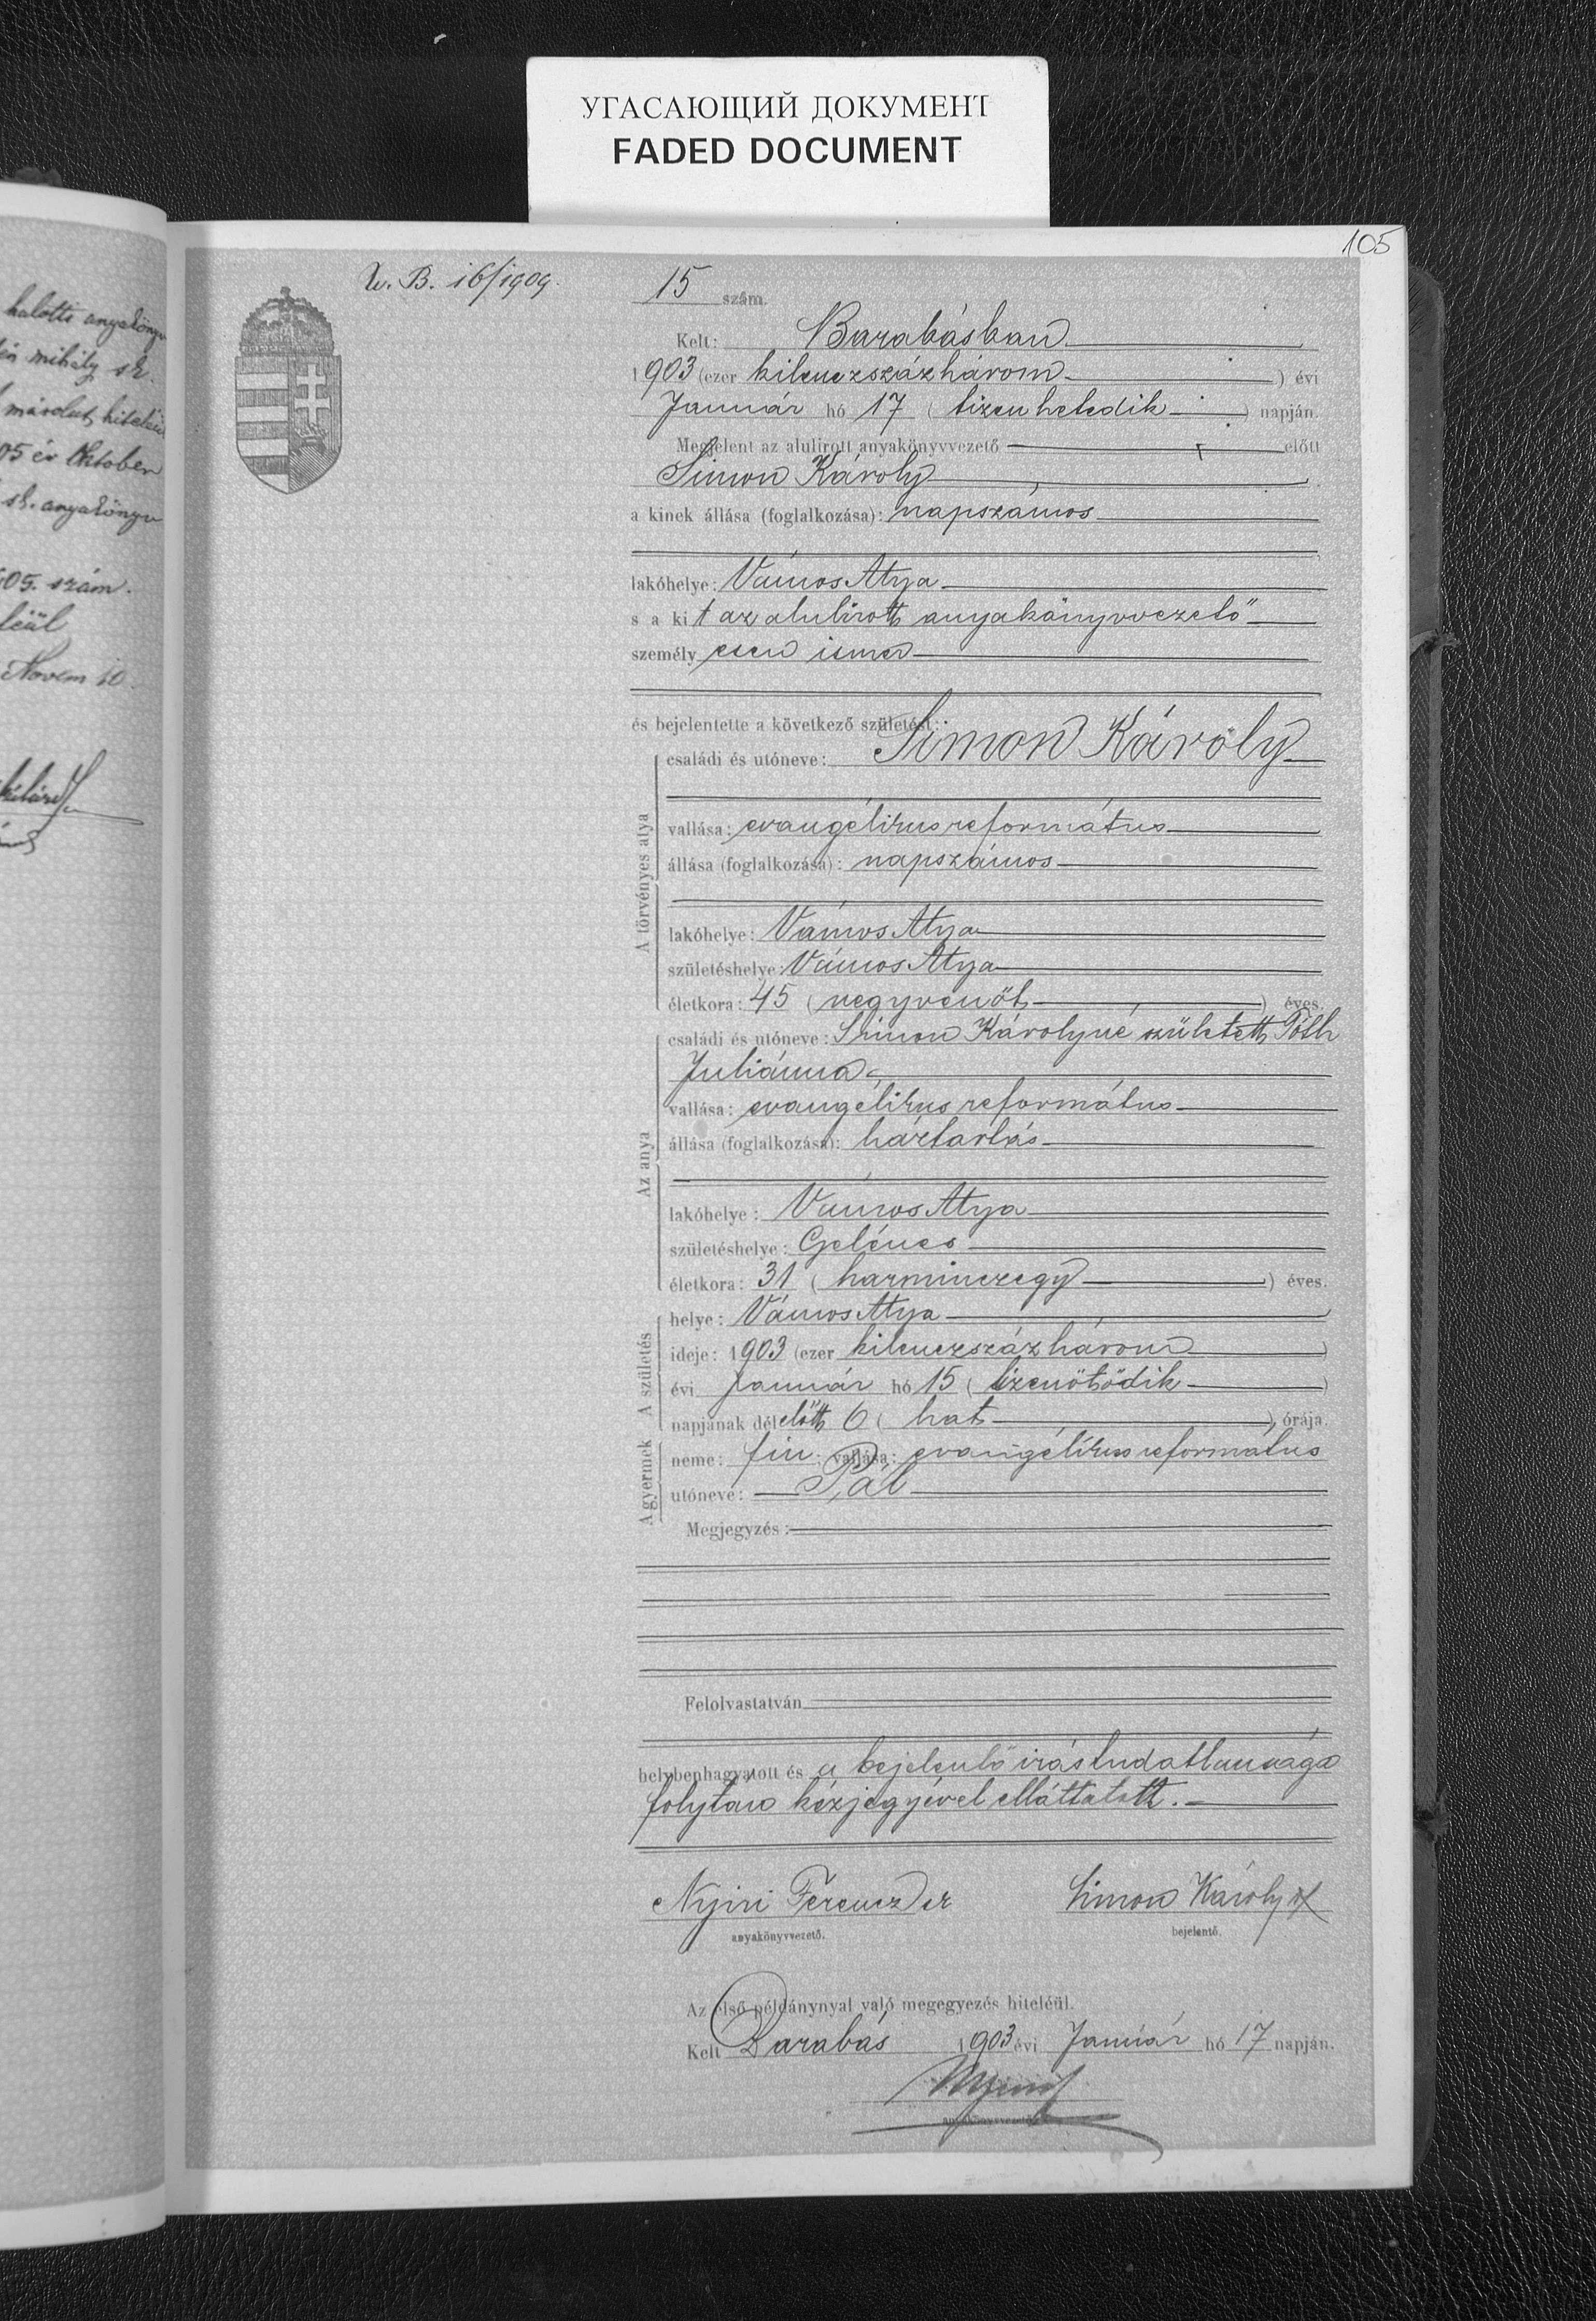 УГАСАЮЩИЙ ДОКУМЕНТ
FADED DOCUMENT
105
halotti anyakönyv
mihály sk.
másolat hiteléül
05 év Oktober
sk. anyakönyv
05. szám.
léül
Novem 10.
B. 16/1909.
15 szám.
Kelt: Barabásban
1903 (ezer kilenczszázhárom) évi
Január hó 17 (tizenhetedik) napján.
Megjelent az alulirott anyakönyvvezető előtt
Simon Károly
a kinek állása (foglalkozása): napszámos
lakóhelye: Vámos Atya
s a kit az alulirott anyakönyvvezető
személyesen ismer
és bejelentette a következő születést:
A törvényes atya
családi és utóneve: Simon Károly
vallása: evangélikus református
állása (foglalkozása): napszámos
lakóhelye: Vámos Atya
születéshelye: Vámos Atya
életkora: 45 (negyvenöt) éves.
Az anya
családi és utóneve: Simon Károlyné született Tóth
Juliánna
vallása: evangélikus református
állása (foglalkozása): háztartás
lakóhelye: Vámos Atya
születéshelye: Gelénes
életkora: 31 (harminczegy) éves.
A születés
helye: Vámos Atya
ideje: 1903 (ezer kilenczszázhárom)
évi Január hó 15 (tizenötödik)
napjának délelőtt 6 (hat), órája.
A gyermek
neme: fiu; vallása: evangélikus református
utóneve: Pál
Megjegyzés:
Felolvastatván
helybenhagyatott és a bejelentő irástudatlansága
folytán kézjegyével elláttatott.
Nyiri Ferencz
Simon Károly
anyakönyvvezető.
bejelentő.
Az első példánynyal való megegyezés hiteléül.
Kelt Barabás 1903 évi Január hó 17 napján.
anyakönyvvezető.